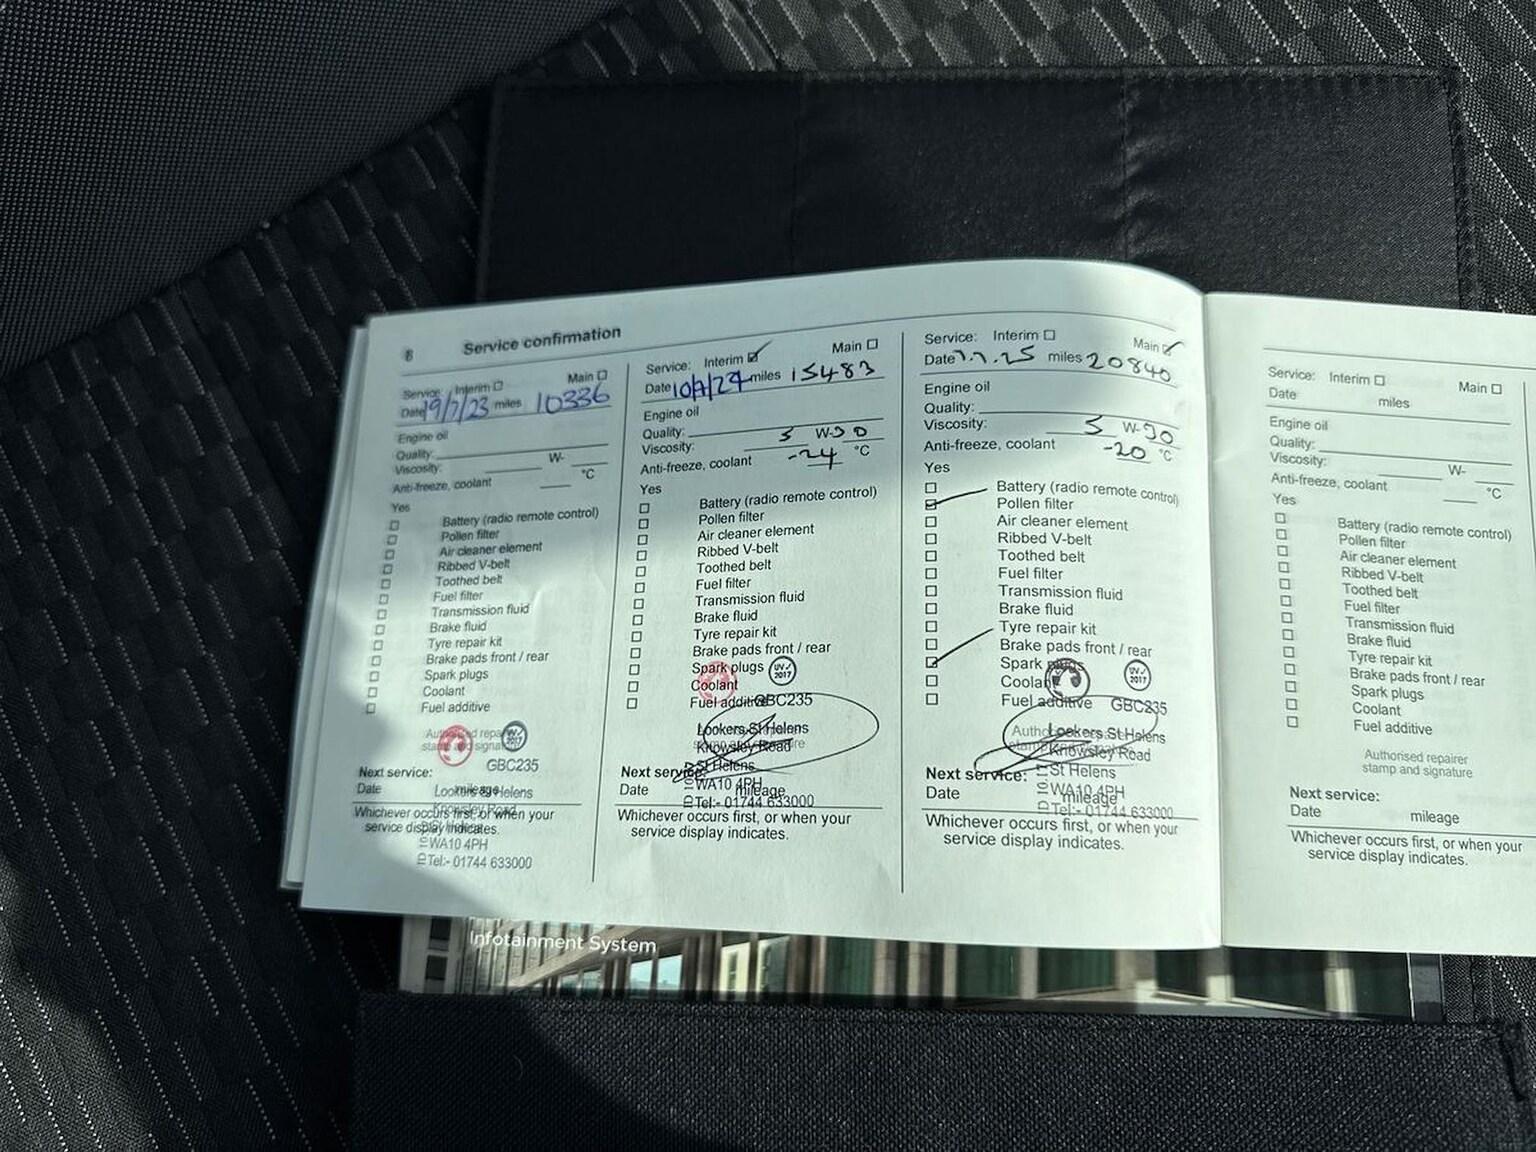 8 Service confirmation
Service: Interim ☐ Main ☐
Date 19/7/23 miles 10336
Engine oil
Quality:
Viscosity: W-
Anti-freeze, coolant °C
Yes
☐ Battery (radio remote control)
☐ Pollen filter
☐ Air cleaner element
☐ Ribbed V-belt
☐ Toothed belt
☐ Fuel filter
☐ Transmission fluid
☐ Brake fluid
☐ Tyre repair kit
☐ Brake pads front / rear
☐ Spark plugs
☐ Coolant
Fuel additive
Authorised repairer
stamp and signature
GBC235
Next service:
Date mileage
Lookers St Helens
Knowsley Road
St Helens
WA10 4PH
Tel:- 01744 633000
Whichever occurs first, or when your
service display indicates.
Service: Interim ☑ Main ☐
Date miles 15483
Engine oil
Quality:
Viscosity: 5 W-30
Anti-freeze, coolant -24 °C
Yes
☐ Battery (radio remote control)
☐ Pollen filter
☐ Air cleaner element
☐ Ribbed V-belt
☐ Toothed belt
☐ Fuel filter
☐ Transmission fluid
☐ Brake fluid
☐ Tyre repair kit
☐ Brake pads front / rear
☐ Spark plugs
☐ Coolant
Fuel additive
UV 2017
GBC235
Lookers St Helens
Knowsley Road
St Helens
WA10 4PH
Tel:- 01744 633000
Next service:
Date mileage
Whichever occurs first, or when your
service display indicates.
Service: Interim ☐ Main ☑
Date 7.7.25 miles 20840
Engine oil
Quality:
Viscosity: 5 W-30
Anti-freeze, coolant -20 °C
Yes
☐ Battery (radio remote control)
☑ Pollen filter
☐ Air cleaner element
☐ Ribbed V-belt
☐ Toothed belt
☐ Fuel filter
☐ Transmission fluid
☐ Brake fluid
Tyre repair kit
☐ Brake pads front / rear
☐ Spark plugs
☐ Coolant
☐ Fuel additive
UV 2017
GBC235
Lookers St Helens
Knowsley Road
St Helens
WA10 4PH
Tel:- 01744 633000
Next service:
Date mileage
Whichever occurs first, or when your
service display indicates.
Service: Interim ☐ Main ☐
Date miles
Engine oil
Quality:
Viscosity: W-
Anti-freeze, coolant °C
Yes
☐ Battery (radio remote control)
☐ Pollen filter
☐ Air cleaner element
☐ Ribbed V-belt
☐ Toothed belt
☐ Fuel filter
☐ Transmission fluid
☐ Brake fluid
☐ Tyre repair kit
☐ Brake pads front / rear
☐ Spark plugs
☐ Coolant
☐ Fuel additive
Authorised repairer
stamp and signature
Next service:
Date mileage
Whichever occurs first, or when your
service display indicates.
Infotainment System